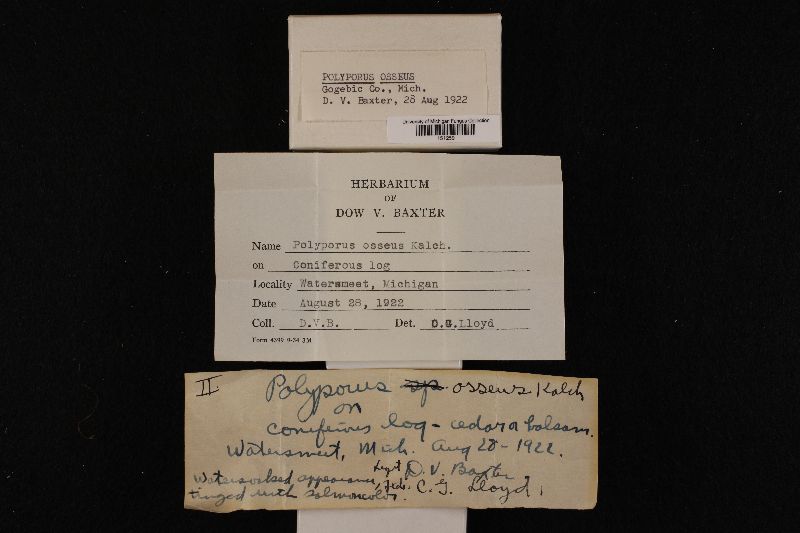 POLYPORUS OSSEUS
Gogebic Co., Mich.
D. V. Baxter, 28 Aug 1922
University of Michigan Fungus Collection
HERBARIUM
OF
DOW V. BAXTER
Name Polyporus osseus Kalch.
on Coniferous log
Locality Watersmeet, Michigan
Date August 28, 1922
Coll. D.V.B. Det. C.G.Lloyd
Form 4399 9-34 3M
II Polyporus sp osseus Kalch
on
coniferous log - cedar or balsam.
Watersmeet, Mich. Aug 28 - 1922.
Legit D. V. Baxter
Watersoaked appearance, Det. C. G. Lloyd.
tinged with salmon color.